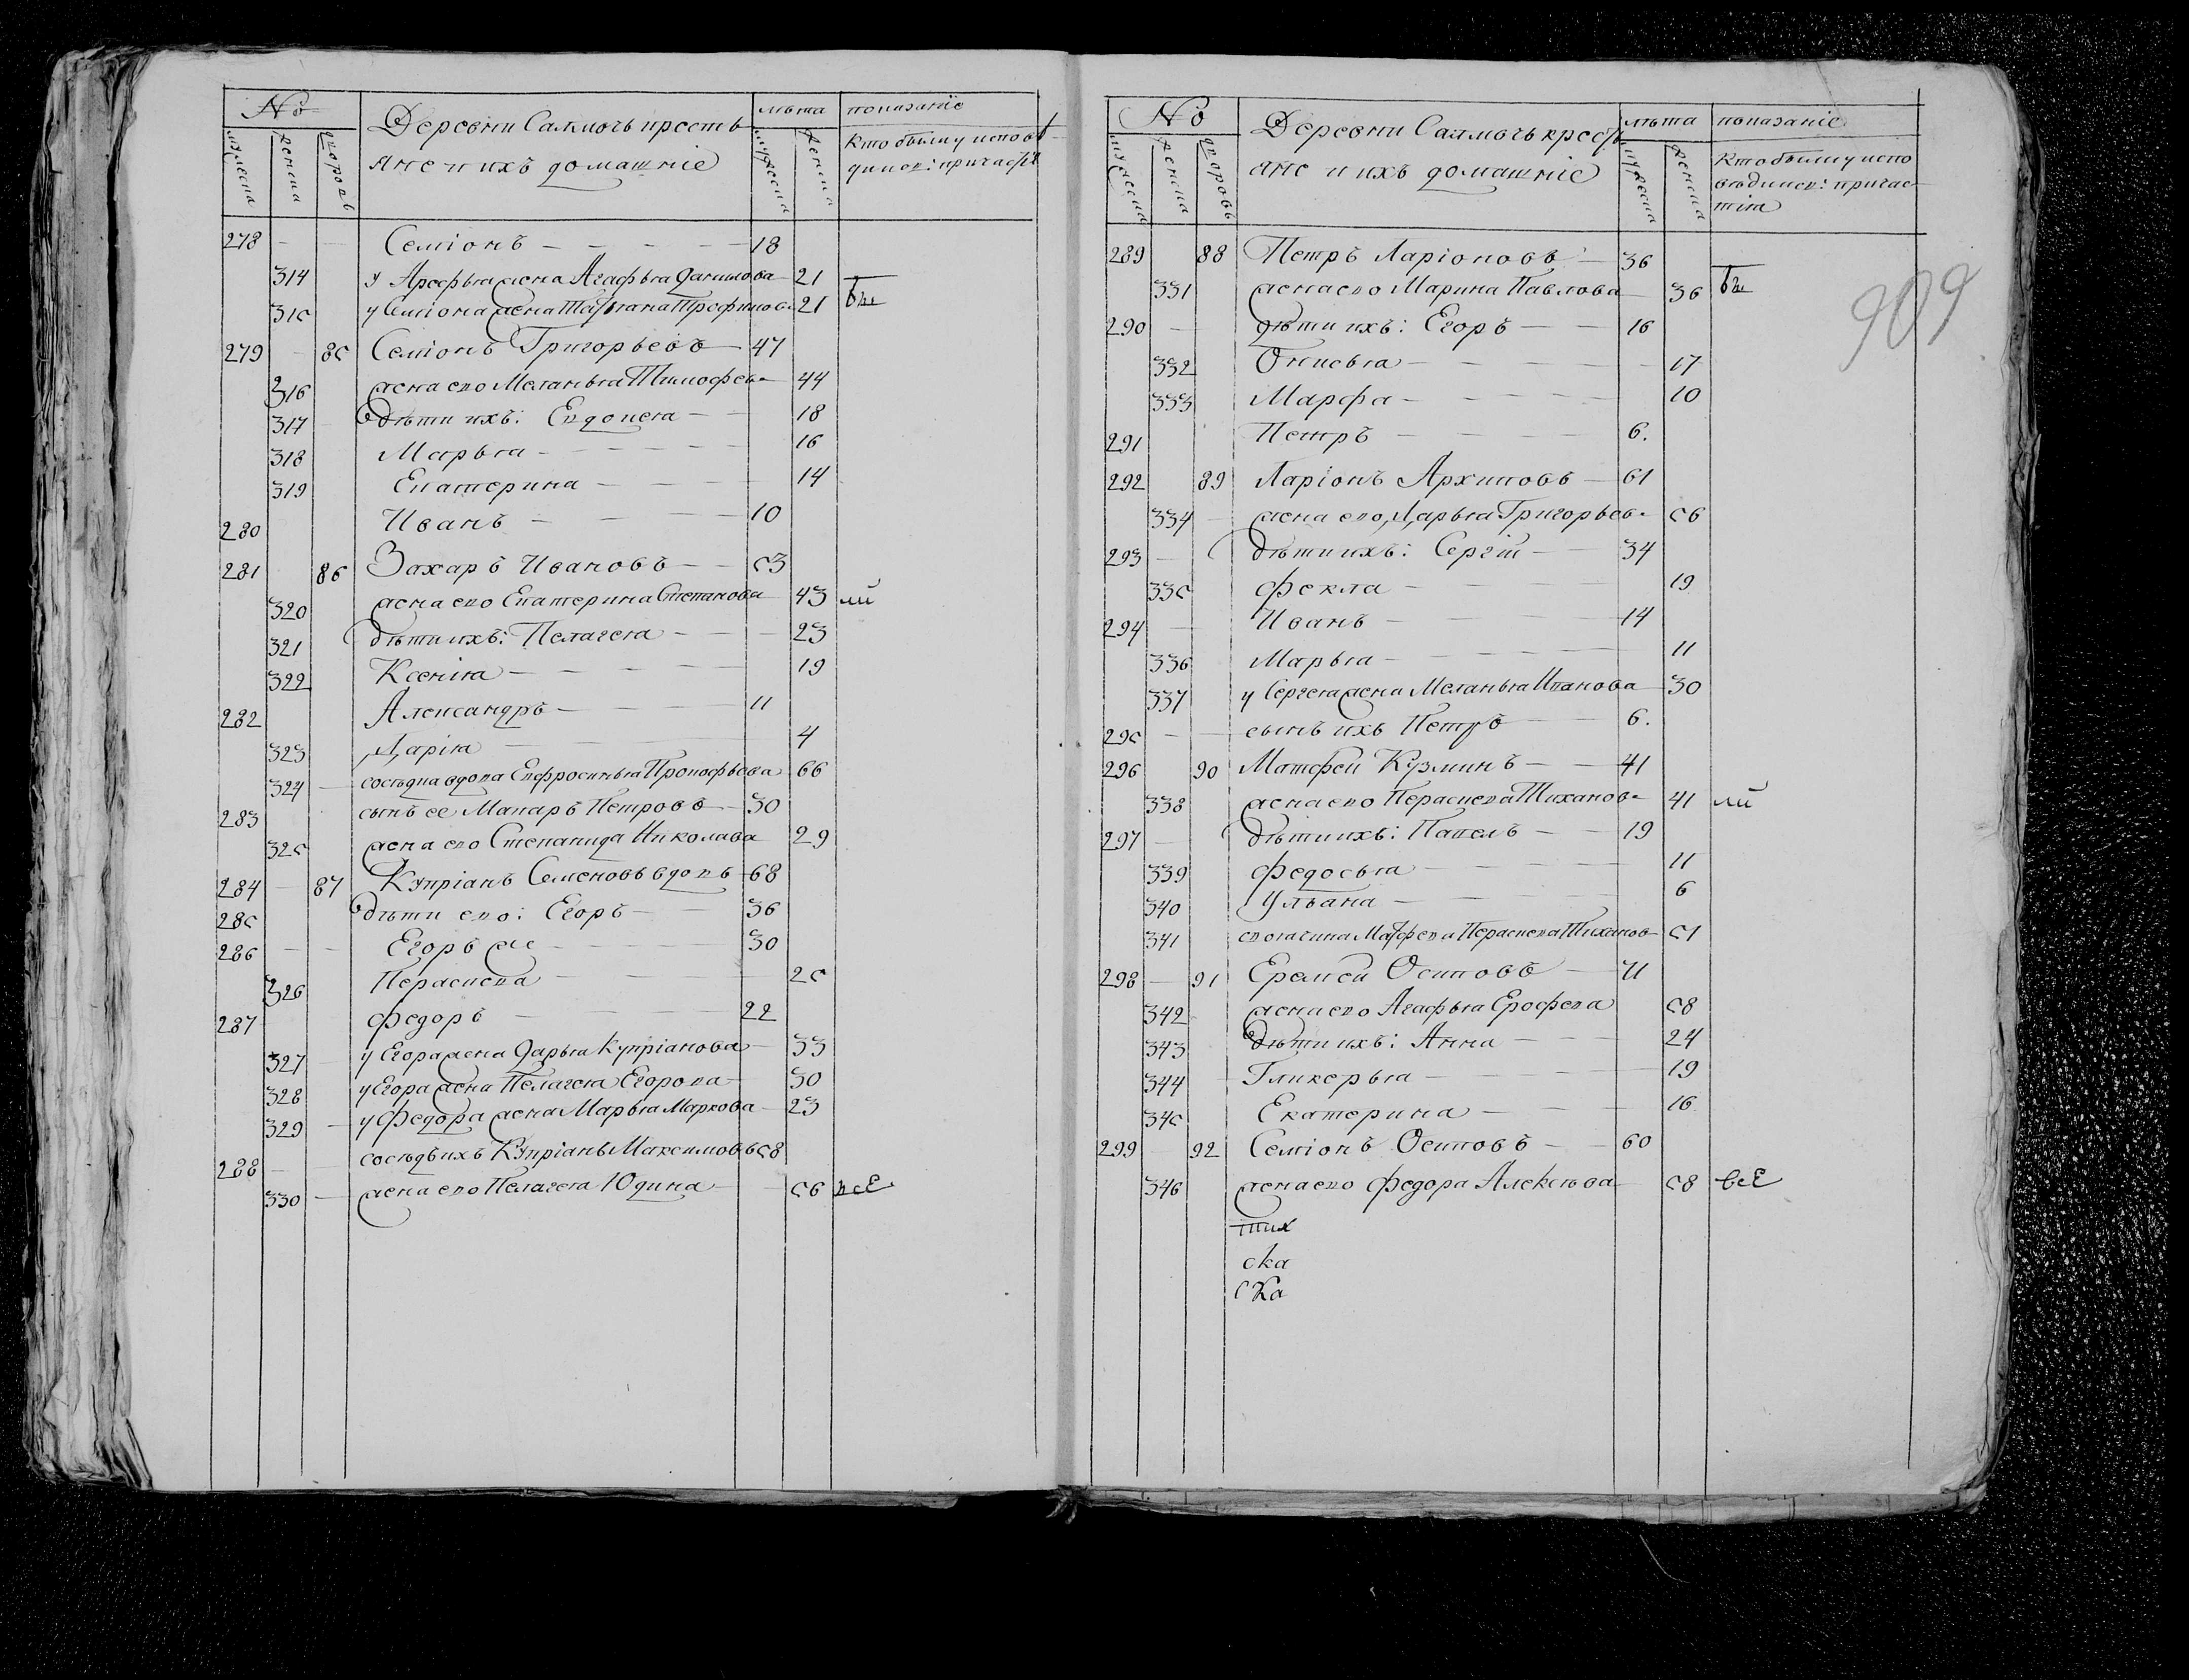 № Деревни Саамочь крестъ лѣта показанїе
мужеска женска дворовъ яне и ихъ домашнїе мужеска женска Кто былъ у исповѣ
динов: причаст
278 — — Семіонъ — 18
314 У Арефья жена Агафья Данилова 21
315 у Семіона жена Татьяна Трофимов. 21 бы
279 — 85 Семіонъ Григорьевъ — 47
316 жена ево Меланья Тимофев. 44
317 дѣти ихъ: Евдокея — 18
318 Марья — 16
319 Екатерина — 14
280 Иванъ — 10
281 86 Захаръ Ивановъ — 53
320 жена ево Екатерина Степанова 43 ли
321 дѣти ихъ: Пелагея — 23
322 Ксенія — 19
282 Александръ — 11
323 Дарія — 4
324 — сосѣдка вдова Евфросинья Прокофьева 66
283 сынъ ее Макаръ Петровъ — 30
325 жена ево Степанида Николава 29
284 — 87 Купріанъ Семеновъ вдовъ 68
285 дѣти ево: Егоръ — 36
286 — — Егоръ же — 30
326 Пераскева — 25
287 Федоръ — 22
327 у Егора жена Дарья Купріанова 33
328 у Егора жена Пелагея Егорова 30
329 — у Федора жена Марья Маркова 23
288 — сосѣдъ ихъ Купріанъ Максимовъ 58
330 — жена ево Пелагея Юдина 56 всЕ
№ Деревни Саамочь крестъ лѣта показанїе
мужеска женска дворовъ яне и ихъ домашнїе мужеска женска Кто былъ у испо
вѣдинов: причас
тія
909
289 88 Петръ Ларіоновъ — 36
331 жена ево Марина Павлова 36 бы
290 — дѣти ихъ: Егоръ — 16
332 Онисья — 17
333 Марфа — 10
291 Петръ — 6.
292 89 Ларіонъ Архиповъ — 61
334 — жена ево Дарья Григорьев. 56
293 — дѣти ихъ: Сергій — 34
335 Фекла — 19
294 — Иванъ — 14
336 Марья — 11
337 у Сергея жена Меланья Иванова 30
295 — — сынъ ихъ Петръ — 6.
296 90 Матфей Кузминъ — 41
338 жена ево Пераскева Тиханов. 41 ли
297 — дѣти ихъ: Павелъ — 19
339 Федосья — 11
340 Ульана — 6
341 своячина Матфева Пераскева Тиханов 51
298 — 91 Еремей Осиповъ — 71
342 жена ево Агафья Ерофева 58
343 дѣти ихъ: Анна — 24
344 — Гликерья — 19
345 Екатерина — 16
299 — 92 Семіонъ Осиповъ — 60
346 жена ево Федора Алексѣва 58 всЕ
тих
ска
ска